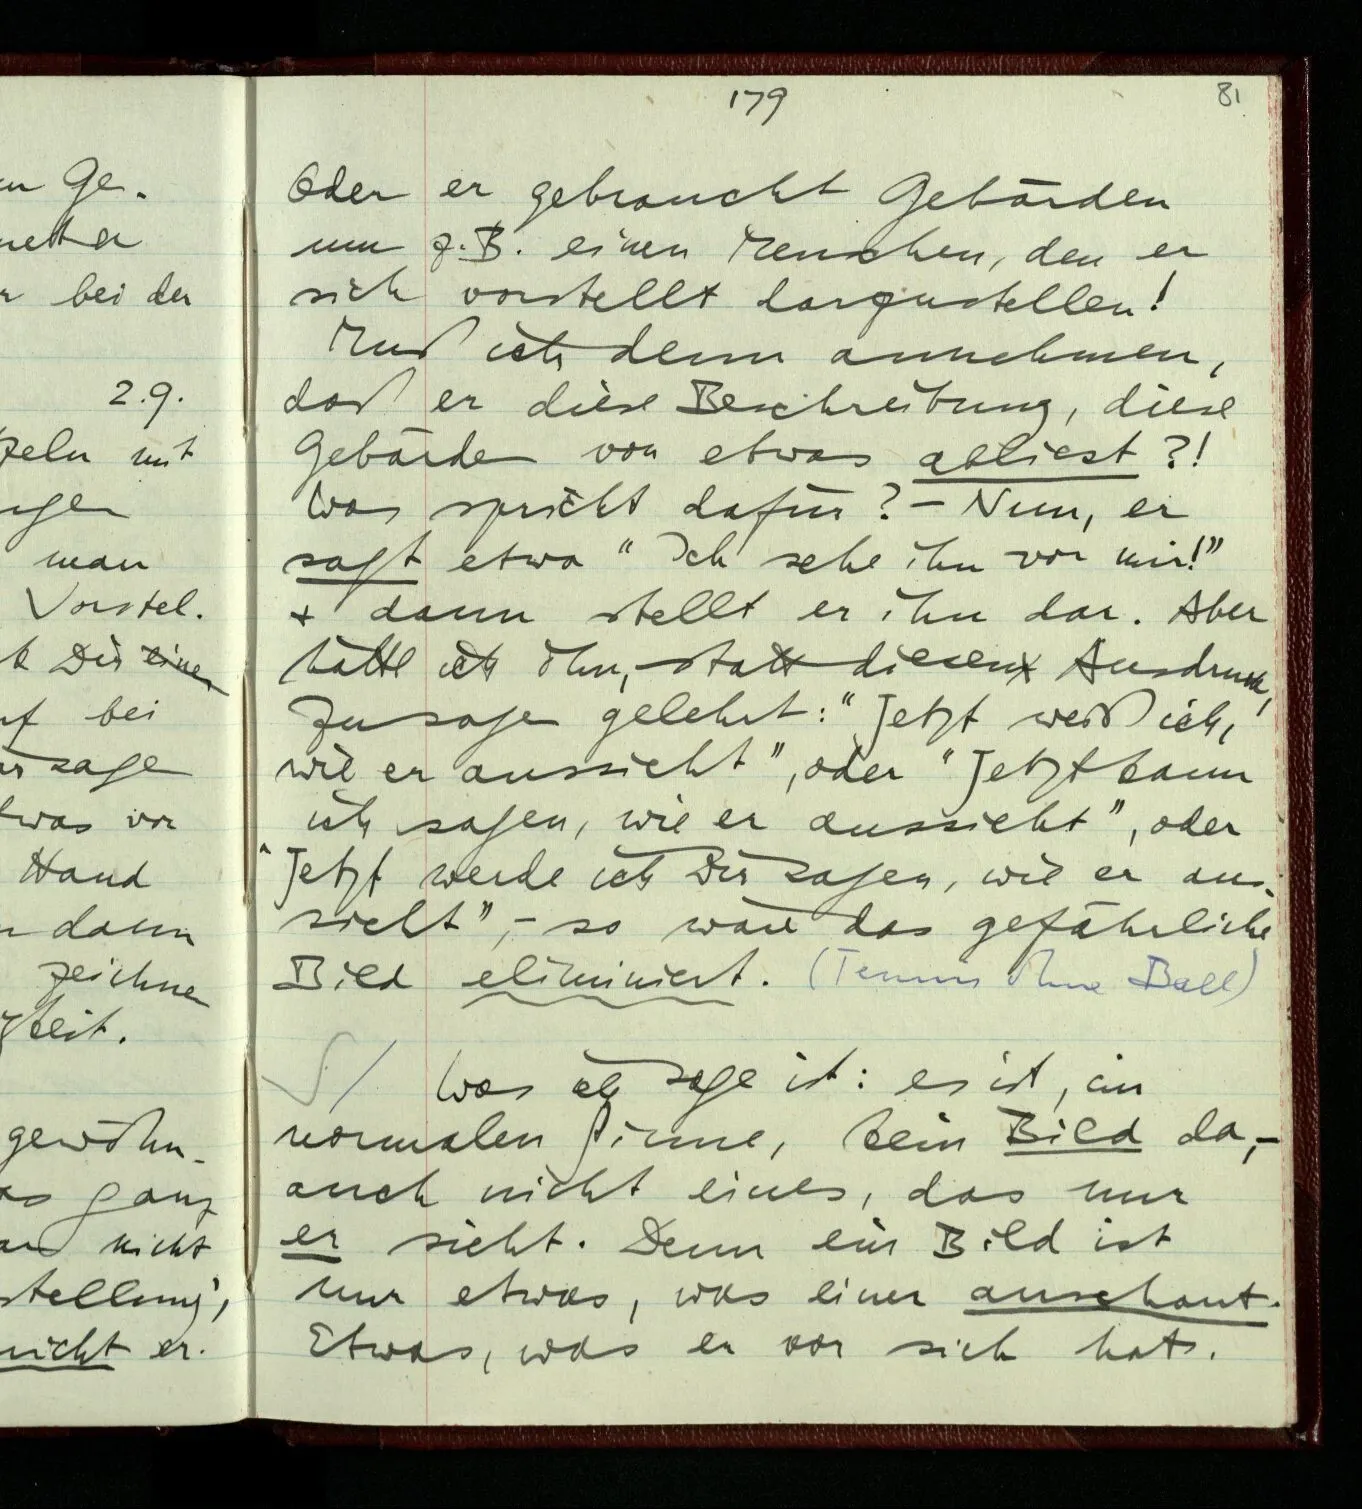 179
81
Oder er gebraucht Gebärden
um z.B. einen Menschen, den er
sich vorstellt darzustellen!
Muß ich denn annehmen,
daß er diese Beschreibung, diese
Gebärde von etwas abliest?!
Was spricht dafür? – Nun, er
sagt etwa “Ich sehe ihn vor mir!”
+ dann stellt er ihn dar. Aber
hätte ich ihn, statt diesen Ausdruck,
zu sagen gelehrt: “Jetzt weiß ich,
wie er aussieht”, oder “Jetzt kann
ich sagen, wie er aussieht”, oder
“Jetzt werde ich Dir sagen, wie er aus-
sieht”, – so wäre das gefährliche
Bild eliminiert. (Tennis ohne Ball)
S /
Was ich sage ist: es ist, im
normalen Sinne, kein Bild da, –
auch nicht eines, das nur
er sieht. Denn ein Bild ist
nur etwas, was einer anschaut.
Etwas, was er vor sich hat.
Ge-
bei der
2.9.
mit
man
Vorstel-
Dir einen
bei
sage
vor
Hand
dann
zeichne
gewöhn-
ganz
nicht
nicht er-